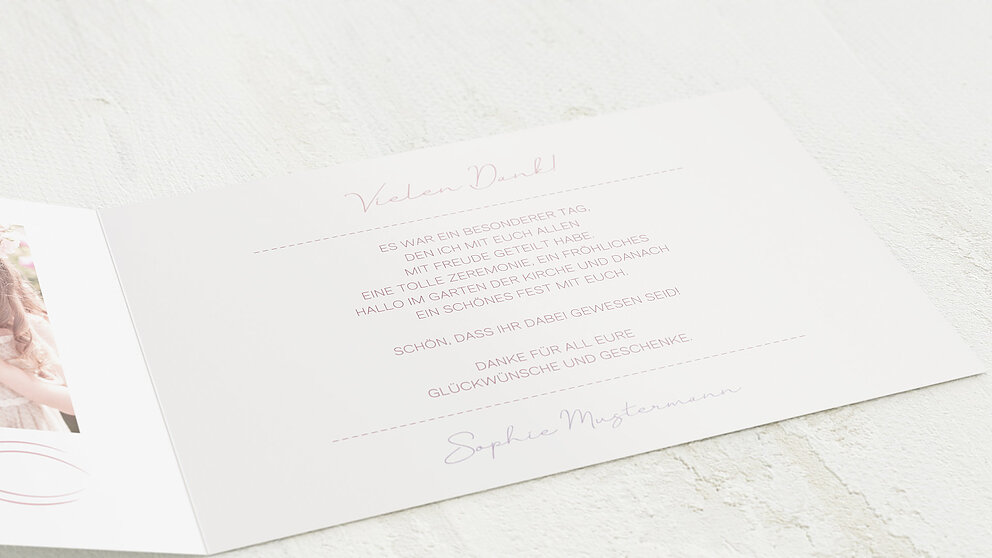 Vielen Dank!
ES WAR EIN BESONDERER TAG,
DEN ICH MIT EUCH ALLEN
MIT FREUDE GETEILT HABE.
EINE TOLLE ZEREMONIE, EIN FRÖHLICHES
HALLO IM GARTEN DER KIRCHE UND DANACH
EIN SCHÖNES FEST MIT EUCH.
SCHÖN, DASS IHR DABEI GEWESEN SEID!
DANKE FÜR ALL EURE
GLÜCKWÜNSCHE UND GESCHENKE.
Sophie Mustermann